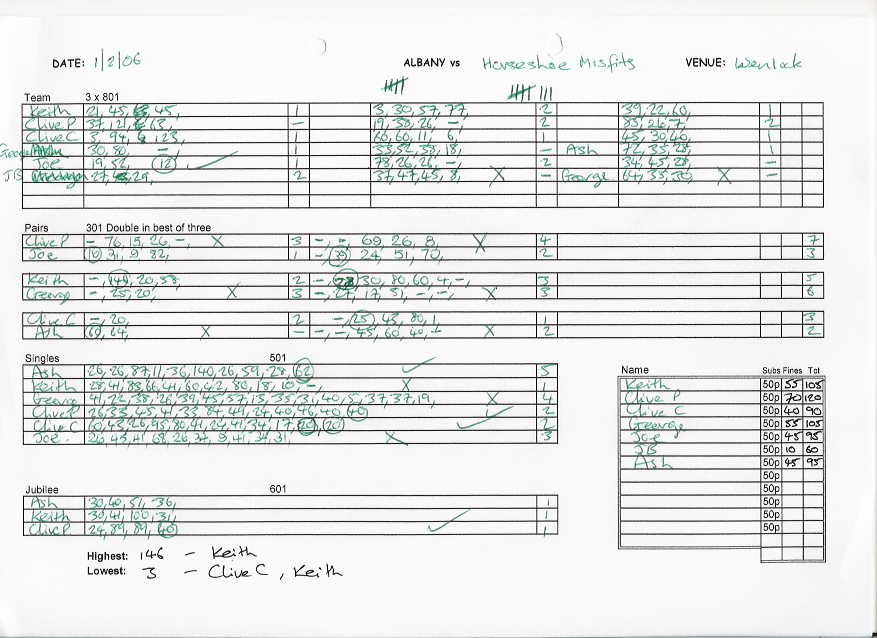 DATE: 1/2/06 ALBANY vs Horseshoe Misfits VENUE: Wenlock
Team 3 x 801
Keith 21, 45, 45, 1 3, 30, 57, 77, 2 39, 22, 60, 1
Clive P 37, 121, 63, – 19, 38, 26, – 2 85, 26, 7, 2
Clive C 3, 94, 123, 1 60, 60, 11, 6, 1 45, 30, 40, 1
George 30, 80, – 1 33, 52, 38, 18, – Ash 72, 35, 28, 1
Joe 19, 52, (12) 1 78, 26, 26, –, 2 34, 45, 28, –
JB 27, 29, 2 37, 47, 45, 8, X – George 64, 33, 30, X –
Pairs 301 Double in best of three
Clive P –, 76, 15, 26, –, X 3 –, –, 69, 26, 8, X 4 7
Joe (10) 31, 9, 82, 1 –, (39) 24, 51, 70, 2 3
Keith –, 20, 58, 2 –, 30, 80, 60, 4, –, 3 5
George –, 25, 20, X 3 –, 27, 17, 31, –, –, X 3 6
Clive C –, 20, 2 –, (25) 43, 80, 1, 1 3
Ash 64, X – –, –, 45, 60, 40, X 2 2
Singles 501
Ash 26, 26, 87, 11, 36, 140, 26, 59, 28, (62) 5
Keith 28, 41, 83, 66, 41, 60, 42, 80, 18, 10, –, X 1
George 41, 22, 38, 26, 39, 45, 57, 13, 35, 31, 40, 5, 37, 37, 19, X 4
Clive P 26, 33, 45, 41, 33, 84, 49, 24, 40, 46, 40, (40) 2
Clive C 60, 43, 26, 95, 80, 41, 24, 41, 34, 17, (20), (20) 2
Joe 26, 45, 41, 68, 26, 34, 9, 41, 34, 31, X 3
Name Subs Fines Tot
Keith 50p 55 105
Clive P 50p 70 120
Clive C 50p 40 90
George 50p 55 105
Joe 50p 45 95
JB 50p 10 60
Ash 50p 45 95
50p
50p
50p
50p
50p
Jubilee 601
Ash 30, 40, 51, 36, 1
Keith 30, 41, 100, 31, 1
Clive P 24, 89, 89, (40) 1
Highest: 146 – Keith
Lowest: 3 – Clive C, Keith